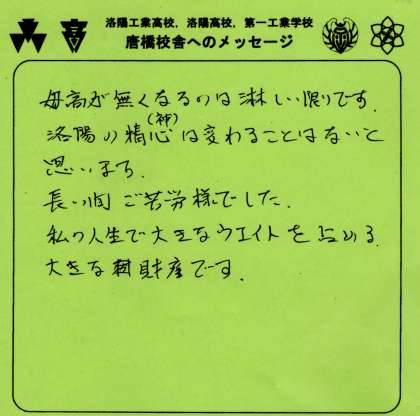 洛陽工業高校，洛陽高校，第一工業学校
唐橋校舎へのメッセージ
高
母高が無くなるのは淋しい限りです.
(神)
洛陽の精心は変わることはないと
思います.
長い間ご苦労様でした.
私の人生で大きなウエイトを占める
大きな財産です.